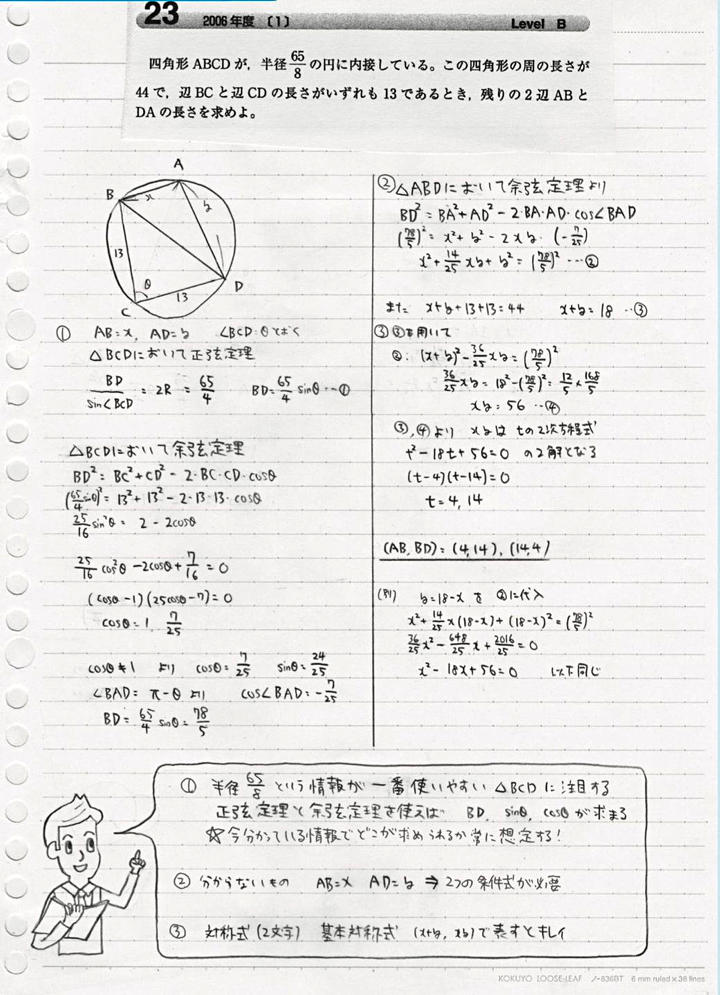 23 2006年度 〔1〕 Level B
四角形ABCDが，半径65/8の円に内接している。この四角形の周の長さが
44で，辺BCと辺CDの長さがいずれも13であるとき，残りの2辺ABと
DAの長さを求めよ。
A
B x y
13
θ D
C 13
① AB=x, AD=y ∠BCD=θとおく
△BCDにおいて正弦定理
BD/sin∠BCD = 2R = 65/4 BD=65/4 sinθ…①
△BCDにおいて余弦定理
BD²=BC²+CD²-2·BC·CD·cosθ
(65/4 sinθ)²=13²+13²-2·13·13·cosθ
25/16 sin²θ = 2-2cosθ
25/16 cos²θ-2cosθ+7/16=0
(cosθ-1)(25cosθ-7)=0
cosθ=1, 7/25
cosθ≠1 より cosθ=7/25 sinθ=24/25
∠BAD=π-θ より cos∠BAD=-7/25
BD=65/4 sinθ=78/5
② △ABDにおいて余弦定理より
BD²=BA²+AD²-2·BA·AD·cos∠BAD
(78/5)²=x²+y²-2xy·(-7/25)
x²+14/25 xy+y²=(78/5)²…②
また x+y+13+13=44 x+y=18…③
③ ③を用いて
②: (x+y)²-36/25 xy=(78/5)²
36/25 xy=18²-(78/5)²=12/5×168/5
xy=56…④
③,④より xyは tの2次方程式
t²-18t+56=0 の2解となる
(t-4)(t-14)=0
t=4, 14
(AB, BD)=(4,14), (14,4)
(別) y=18-x を②に代入
x²+14/25 x(18-x)+(18-x)²=(78/5)²
36/25 x²-648/25 x+2016/25=0
x²-18x+56=0 以下同じ
① 半径65/8という情報が一番使いやすい△BCDに注目する
正弦定理と余弦定理を使えば BD, sinθ, cosθが求まる
☆今分かっている情報でどこが求められるか常に想定する！
② 分からないもの AB=x AD=y ⇒ 2つの条件式が必要
③ 対称式(2文字) 基本対称式 (x+y, xy)で表すとキレイ
KOKUYO LOOSE-LEAF ノ-836BT 6 mm ruled×36 lines